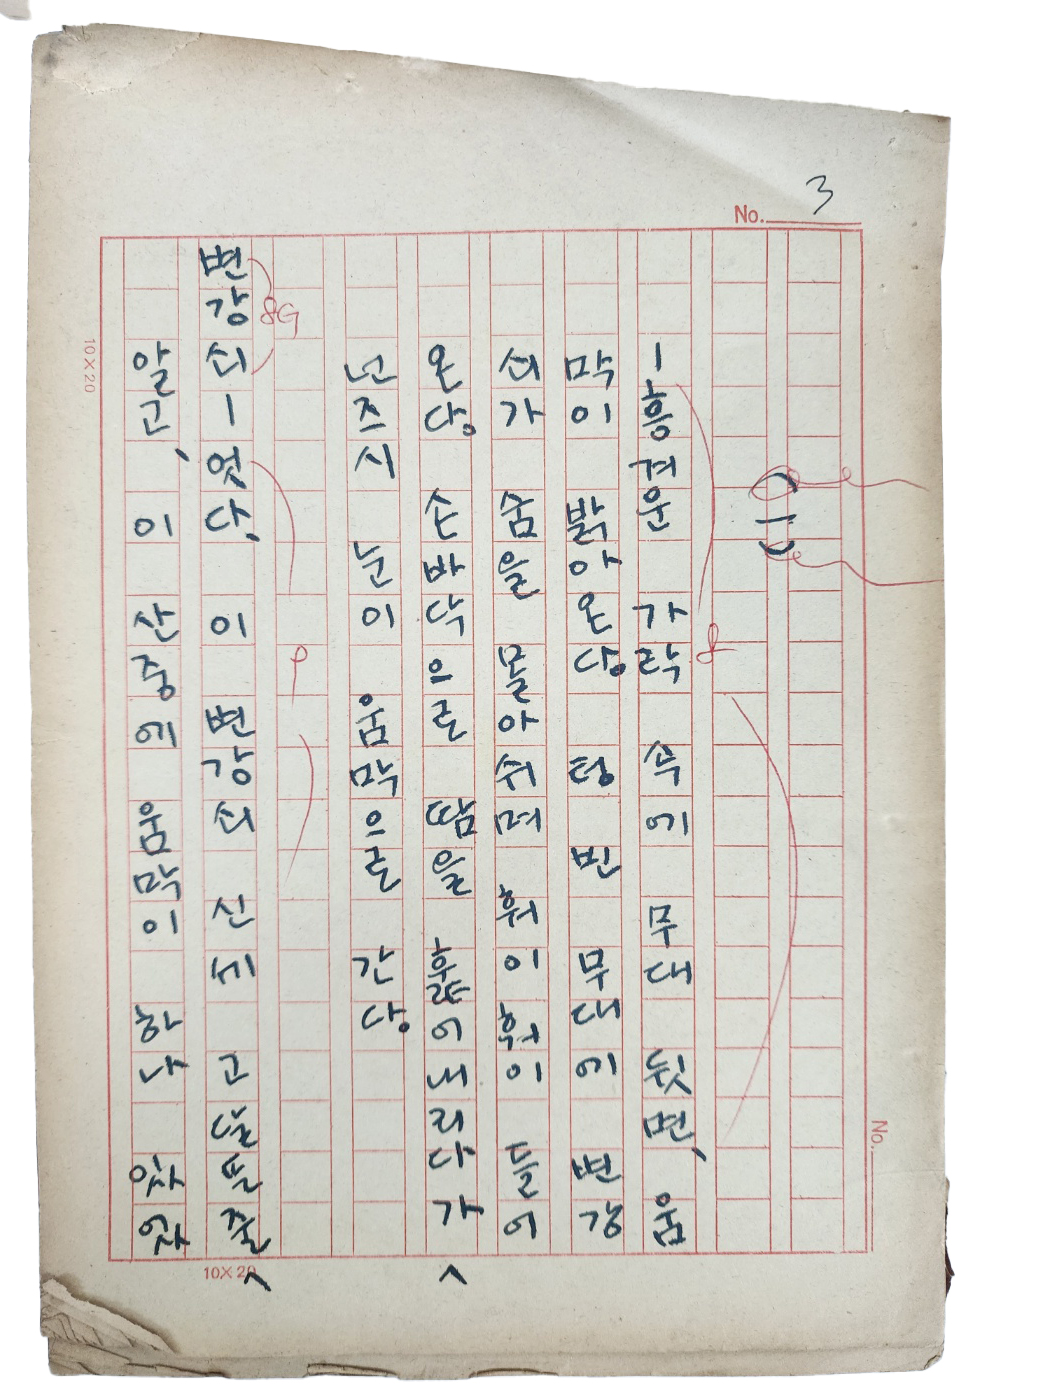 No. 3
(1)
ㅡ흥겨운 가락 속에 무대 뒷면, 움
막이 밝아온다. 텅 빈 무대에 변강
쇠가 숨을 몰아쉬며 훠이훠이 들어
온다. 손바닥으로 땀을 훑어내리다가
넌즈시 눈이 움막으로 간다.
8G
변강쇠ㅡ엇다. 이 변강쇠 신세 고달플줄
알고, 이 산중에 움막이 하나 있자
10X20
10X20
No.